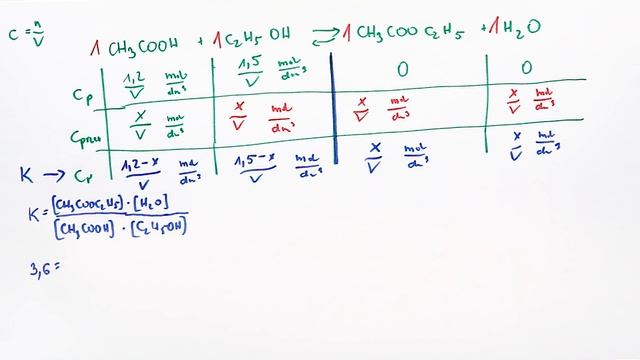 C = n/V
1 CH3COOH + 1 C2H5OH ⇌ 1 CH3COOC2H5 + 1 H2O
Cp 1,2/V mol/dm³ 1,5/V mol/dm³ 0 0
Cprzer x/V mol/dm³ x/V mol/dm³ x/V mol/dm³ x/V mol/dm³
K → Cr 1,2-x/V mol/dm³ 1,5-x/V mol/dm³ x/V mol/dm³ x/V mol/dm³
K = [CH3COOC2H5] · [H2O] / [CH3COOH] · [C2H5OH]
3,6 =